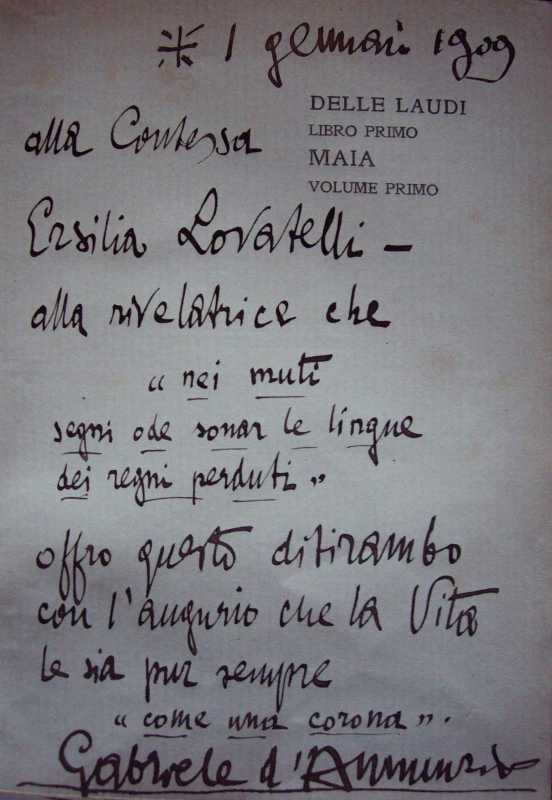 1 gennaio 1909
DELLE LAUDI
LIBRO PRIMO
MAIA
VOLUME PRIMO
alla Contessa
Ersilia Lovatelli –
alla rivelatrice che
“nei muti
segni ode sonar le lingue
dei regni perduti”
offro questo ditirambo
con l'augurio che la Vita
le sia pur sempre
“come una corona”.
Gabriele d'Annunzio